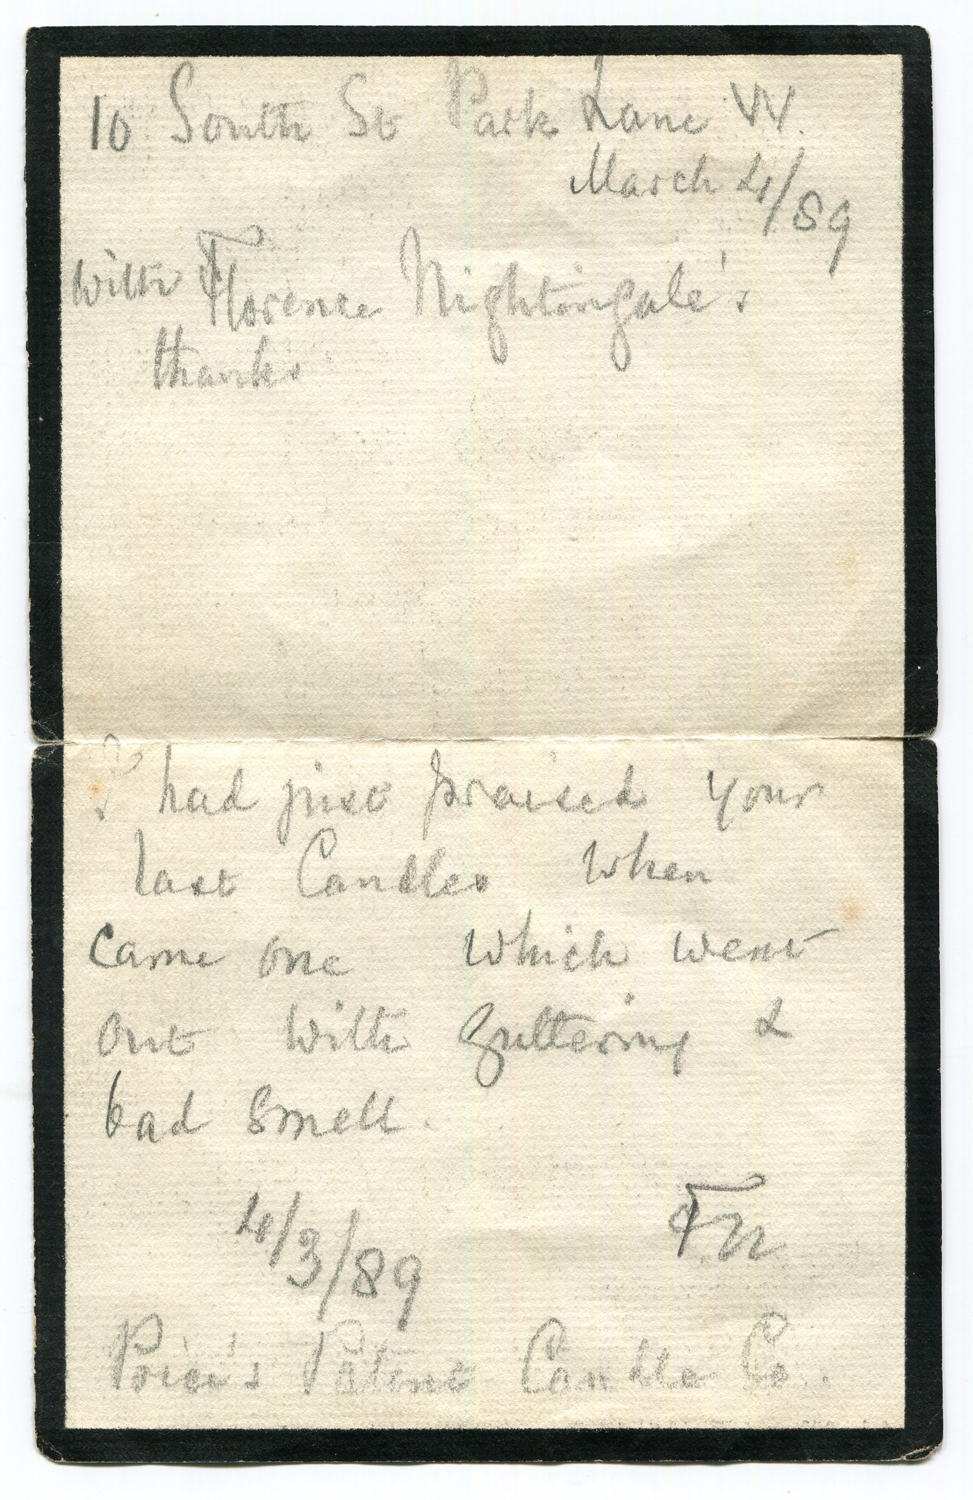 10 South St Park Lane W.
March 4/89
With Florence Nightingale's
thanks
I had just praised your
last Candles when
came one which went
out with guttering &
bad smell.
4/3/89 FN
Price's Patent Candle Co.